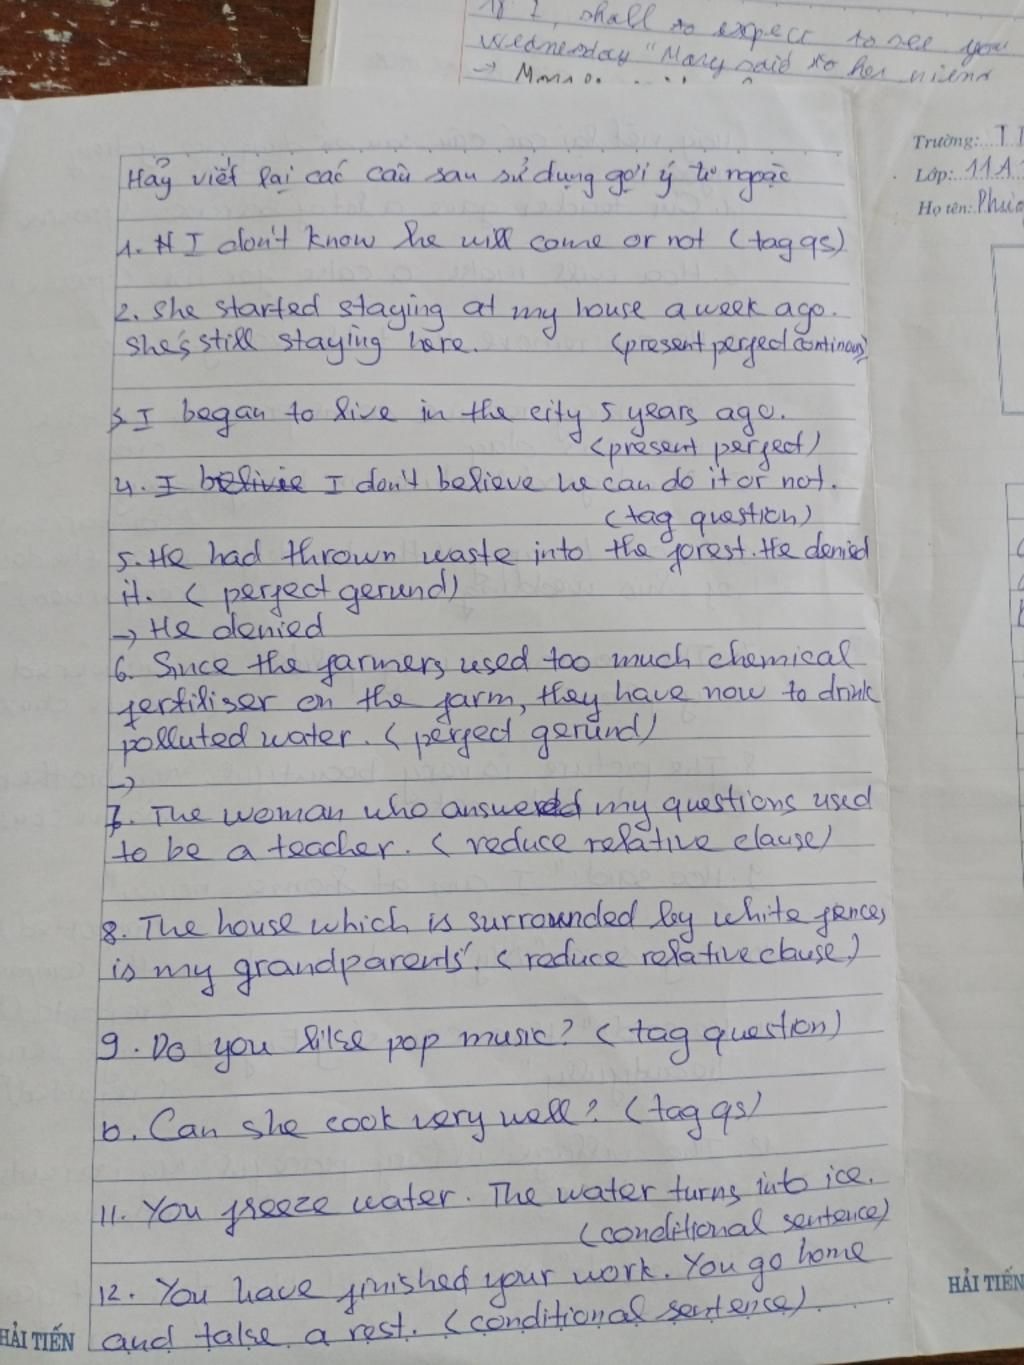 I, shall to expect to see you
Wednesday" Mary said to her friend
Trường:
Lớp: 11A
Họ tên:
Hãy viết lại các câu sau sử dụng gợi ý từ ngoặc
1. I don't know he will come or not (tag qs)
2. She started staying at my house a week ago.
She's still staying here. (present perfect continous)
3. I began to live in the city 5 years ago.
(present perfect)
4. I belivie I don't believe he can do it or not.
(tag question)
5. He had thrown waste into the forest. He denied
it. (perfect gerund)
→ He denied
6. Since the farmers used too much chemical
fertiliser on the farm, they have now to drink
polluted water. (perfect gerund)
→
7. The woman who answered my questions used
to be a teacher. (reduce relative clause)
8. The house which is surrounded by white fences
is my grandparents'. (reduce relative clause)
9. Do you like pop music? (tag question)
10. Can she cook very well? (tag qs)
11. You freeze water. The water turns into ice.
(conditional sentence)
12. You have finished your work. You go home
and take a rest. (conditional sentence).
HẢI TIẾN
HẢI TIẾN